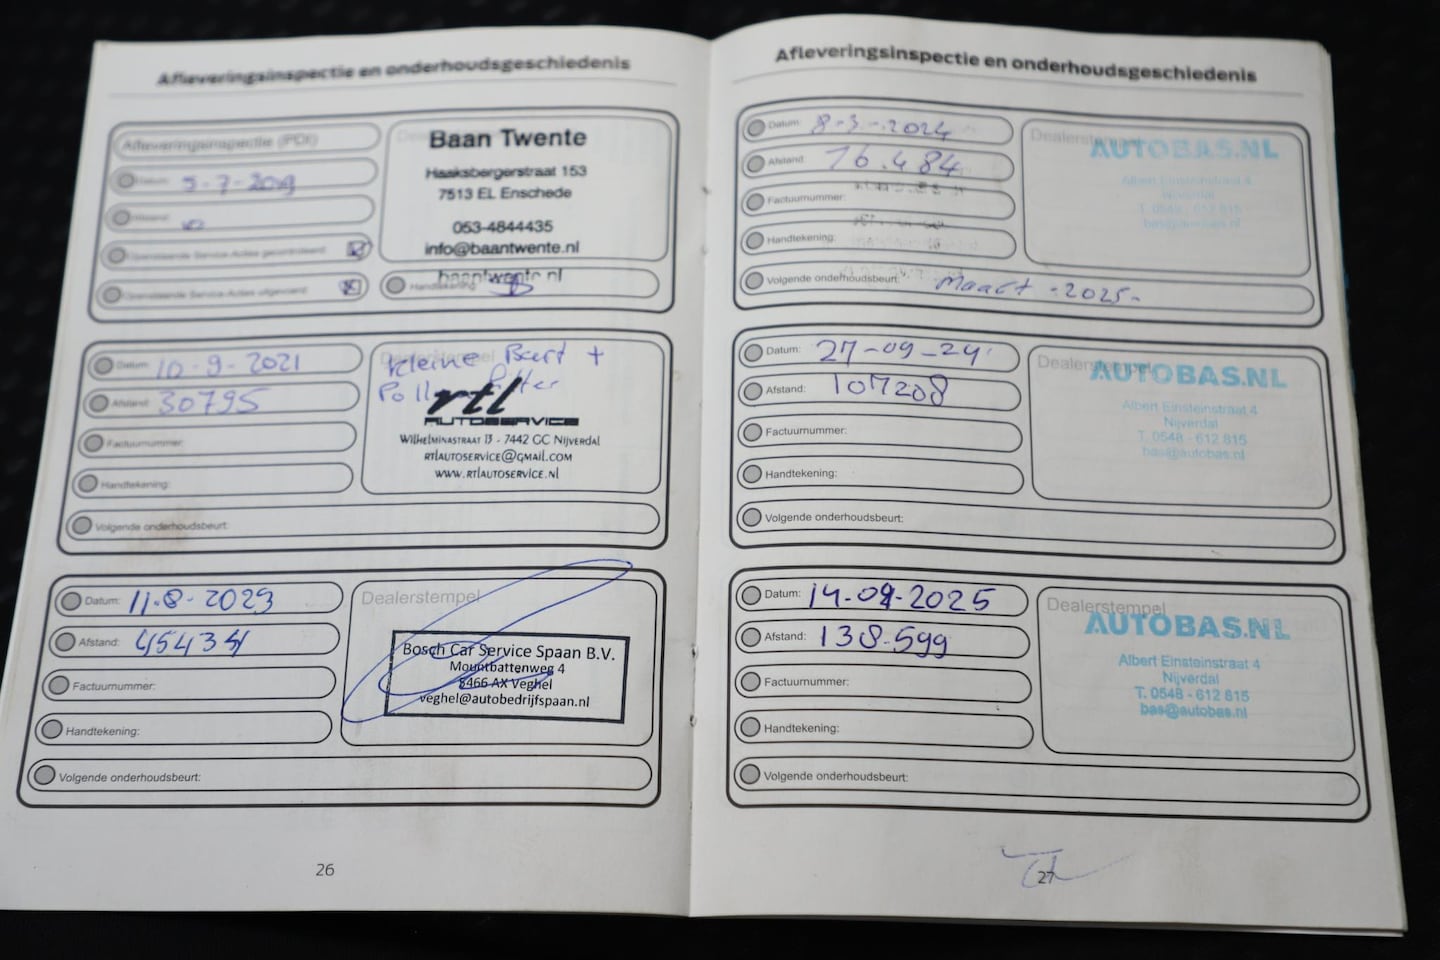 Afleveringsinspectie en onderhoudsgeschiedenis
Afleveringsinspectie (PDI)
Datum: 5-7-2019
Afstand:
Openstaande Service Acties gecontroleerd
Openstaande Service Acties uitgevoerd
Baan Twente
Haaksbergerstraat 153
7513 EL Enschede
053-4844435
info@baantwente.nl
baantwente.nl
Handtekening:
Datum: 10-9-2021
Afstand: 30795
Factuurnummer:
Handtekening:
Volgende onderhoudsbeurt:
Dealerstempel
kleine Beurt +
rtl
AUTOSERVICE
Wilhelminastraat 13 - 7442 GC Nijverdal
rtlautoservice@gmail.com
www.rtlautoservice.nl
Datum: 11-8-2023
Afstand: 45434
Factuurnummer:
Handtekening:
Volgende onderhoudsbeurt:
Dealerstempel
Bosch Car Service Spaan B.V.
Mountbattenweg 4
5466 AX Veghel
veghel@autobedrijfspaan.nl
26
Afleveringsinspectie en onderhoudsgeschiedenis
Datum: 8-3-2024
Afstand: 76.484
Factuurnummer:
Handtekening:
Volgende onderhoudsbeurt: Maart -2025-
Dealerstempel
AUTOBAS.NL
Albert Einsteinstraat 4
Nijverdal
T. 0548 - 612 815
bas@autobas.nl
Datum: 27-09-24
Afstand: 107208
Factuurnummer:
Handtekening:
Volgende onderhoudsbeurt:
Dealerstempel
AUTOBAS.NL
Albert Einsteinstraat 4
Nijverdal
T. 0548 - 612 815
bas@autobas.nl
Datum: 14-04-2025
Afstand: 138.599
Factuurnummer:
Handtekening:
Volgende onderhoudsbeurt:
Dealerstempel
AUTOBAS.NL
Albert Einsteinstraat 4
Nijverdal
T. 0548 - 612 815
bas@autobas.nl
27